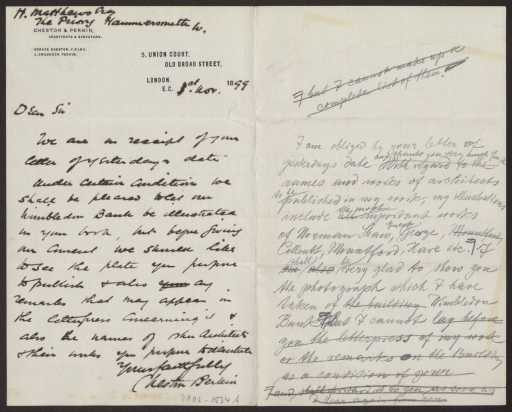 H. Matthews Esq
The Priory Hammersmith W.
CHESTON & PERKIN,
ARCHITECTS & SURVEYORS.
HORACE CHESTON, F.R.I.B.A.
J. CRADDOCK PERKIN.
5, UNION COURT,
OLD BROAD STREET,
LONDON,
E.C. 1st Nov. 1899
Dear Sir
We are in receipt of your
letter of yesterday's date
Under certain conditions we
shall be pleased to let our
Wimbledon Bank be illustrated
in your book, but before giving
our consent we should like
to see the plate you purpose
to publish & also your any
remarks that may appear in
the letterpress concerning it &
also the names of other architects
& their works you purpose to
Yours faithfully
Cheston Perkin
but I cannot make up a
complete list of them.
I am obliged by your letter of
yesterdays date and thank you very much
With regard to the
names and works of architects
to be published in my work, my illustrations
include the most important works
of Norman Shaw, George,
Collcutt, Mountford, Hare etc. I
shall be very glad to show you
the photograph which I have
taken of the building Wimbledon
Bank but I cannot lay before
you the letterpress of my work
or the remarks on the Building
as a condition of your